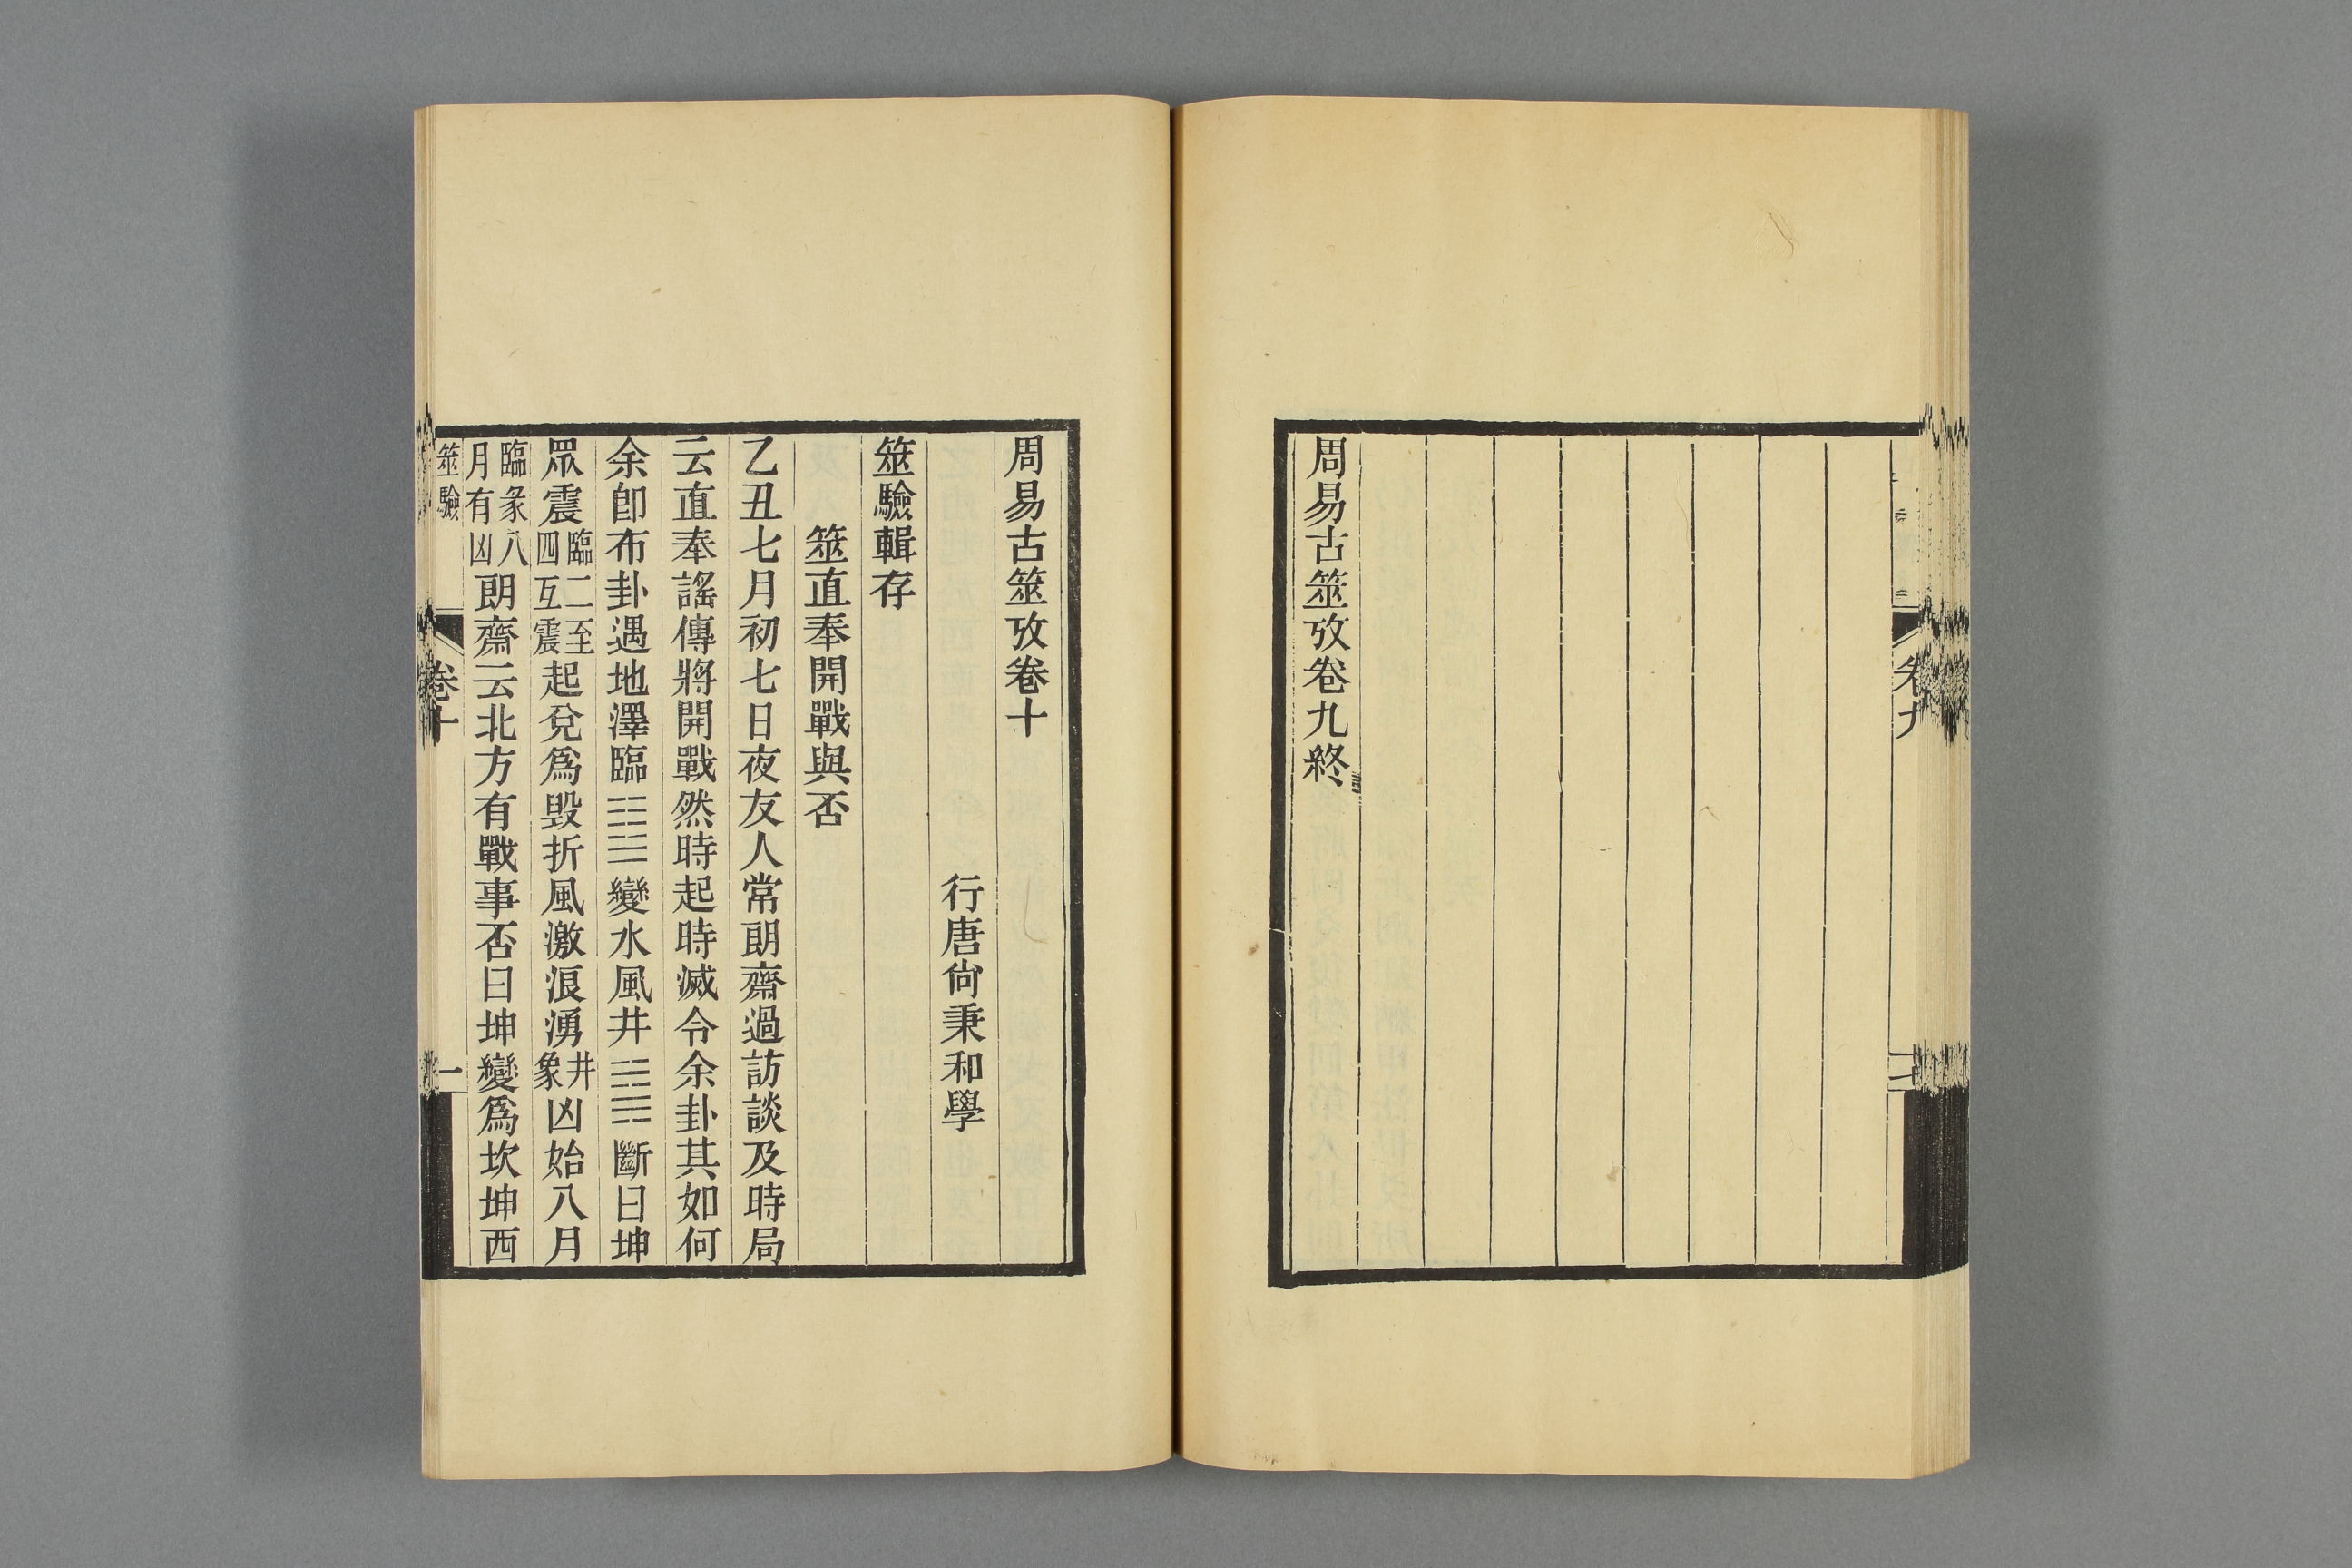 卷九
周易古筮攷卷九終
周易古筮攷卷十
行唐尙秉和學
筮驗輯存
筮直奉開戰與否
乙丑七月初七日夜友人常朗齋過訪談及時局
云直奉謠傳將開戰然時起時滅令余卦其如何
余卽布卦遇地澤臨䷒變水風井䷯斷曰坤
眾震臨二至四互震起兌爲毁折風激浪湧井象凶始八月
臨彖八月有凶朗齋云北方有戰事否曰坤變爲坎坤西
筮驗
卷十
一